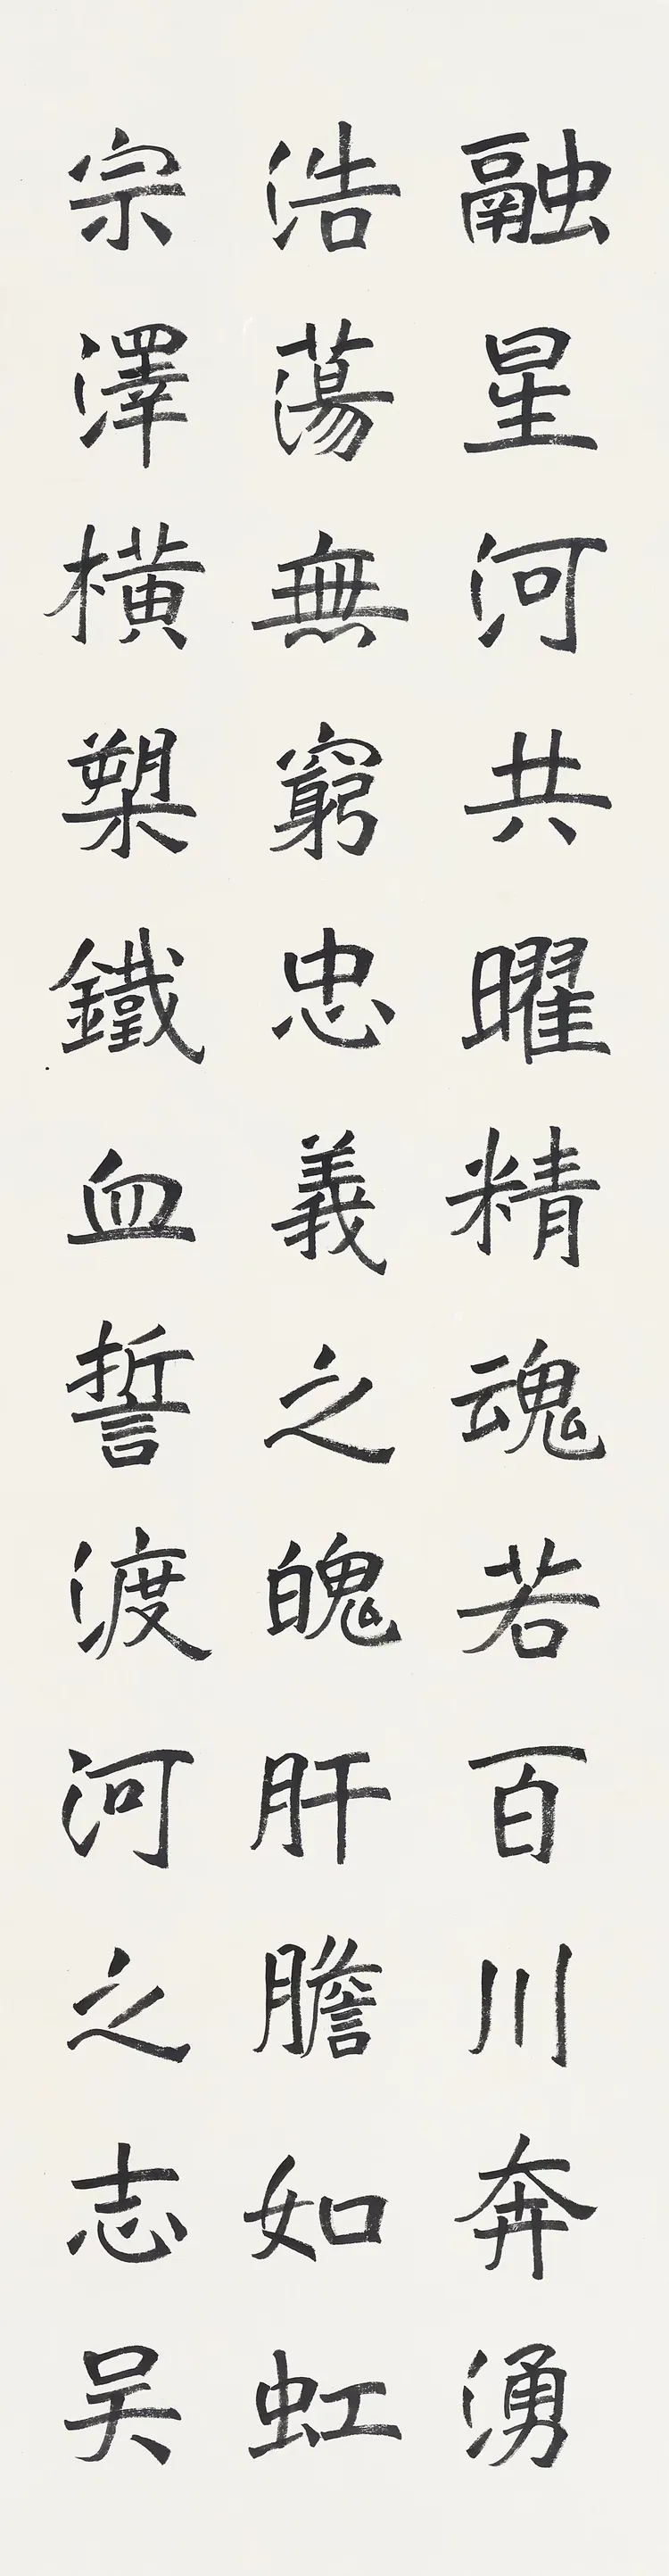 融星河共曜精魂若百川奔湧
浩蕩無窮忠義之魄肝膽如虹
宗澤橫槊鐵血誓渡河之志吴